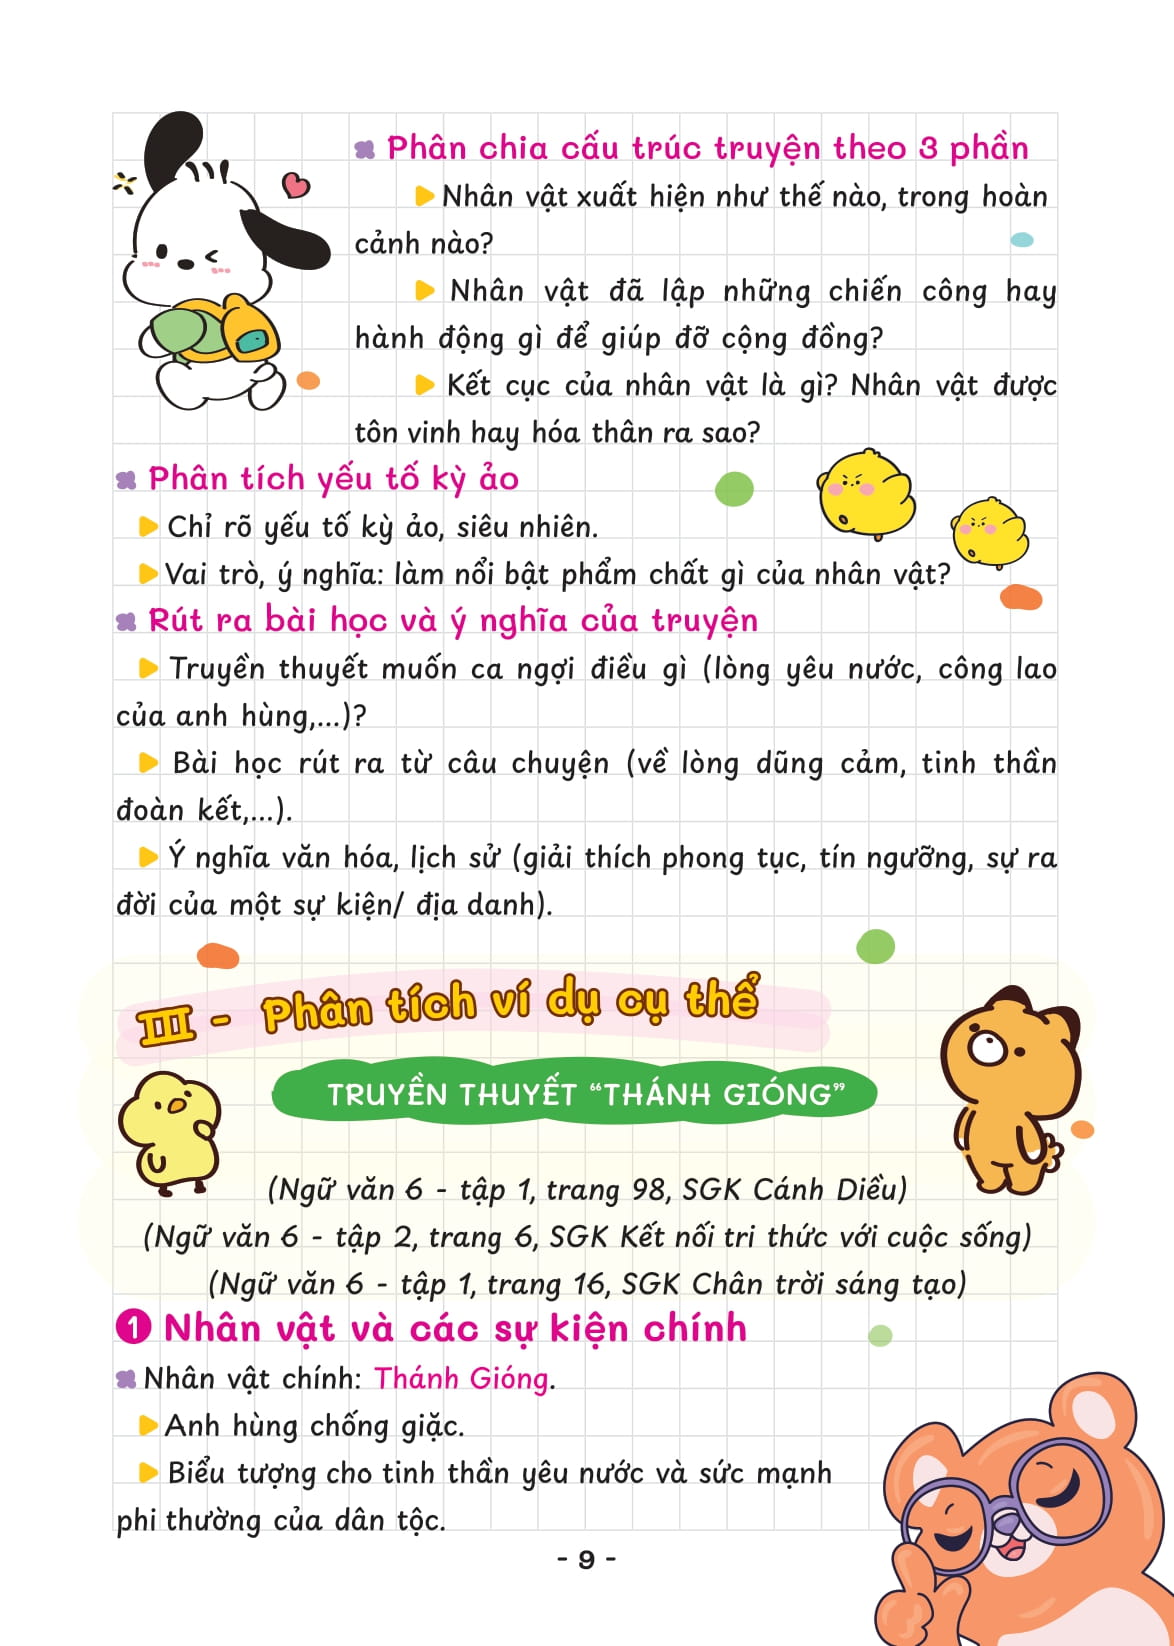 Phân chia cấu trúc truyện theo 3 phần
Nhân vật xuất hiện như thế nào, trong hoàn
cảnh nào?
Nhân vật đã lập những chiến công hay
hành động gì để giúp đỡ cộng đồng?
Kết cục của nhân vật là gì? Nhân vật được
tôn vinh hay hóa thân ra sao?
Phân tích yếu tố kỳ ảo
Chỉ rõ yếu tố kỳ ảo, siêu nhiên.
Vai trò, ý nghĩa: làm nổi bật phẩm chất gì của nhân vật?
Rút ra bài học và ý nghĩa của truyện
Truyền thuyết muốn ca ngợi điều gì (lòng yêu nước, công lao
của anh hùng,...)?
Bài học rút ra từ câu chuyện (về lòng dũng cảm, tinh thần
đoàn kết,...).
Ý nghĩa văn hóa, lịch sử (giải thích phong tục, tín ngưỡng, sự ra
đời của một sự kiện/ địa danh).
III - Phân tích ví dụ cụ thể
TRUYỀN THUYẾT “THÁNH GIÓNG”
(Ngữ văn 6 - tập 1, trang 98, SGK Cánh Diều)
(Ngữ văn 6 - tập 2, trang 6, SGK Kết nối tri thức với cuộc sống)
(Ngữ văn 6 - tập 1, trang 16, SGK Chân trời sáng tạo)
1 Nhân vật và các sự kiện chính
Nhân vật chính: Thánh Gióng.
Anh hùng chống giặc.
Biểu tượng cho tinh thần yêu nước và sức mạnh
phi thường của dân tộc.
- 9 -